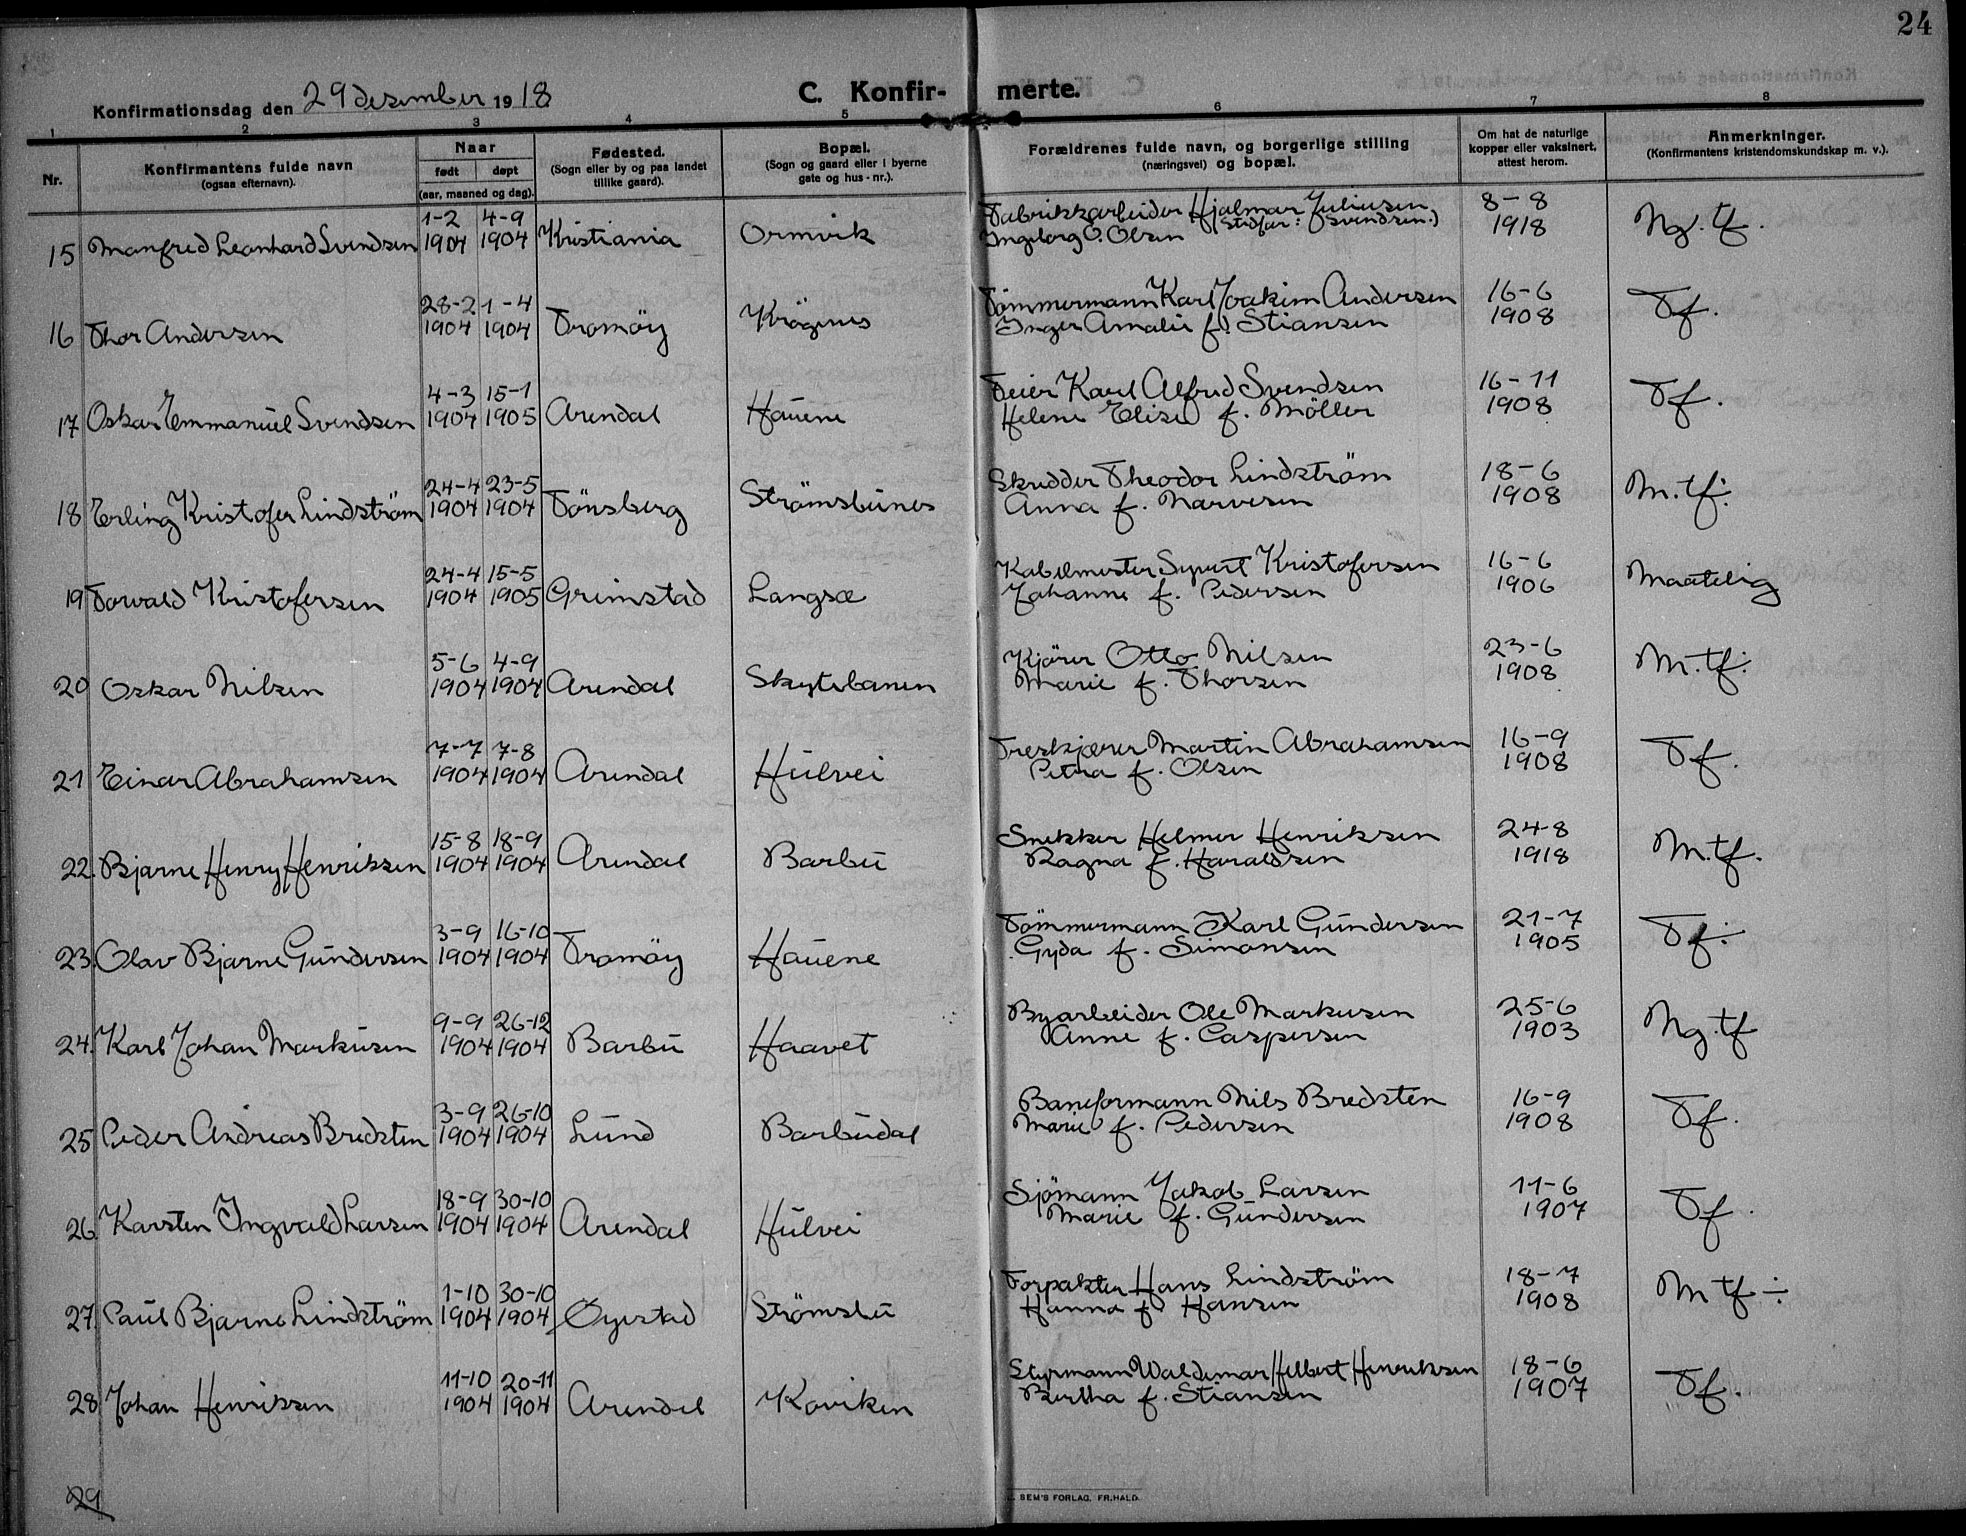 24
Konfirmationsdag den 29 desember 1918
C. Konfirmerte.
1 2 3 4 5 6 7 8
Nr.
Konfirmantens fulde navn
(ogsaa efternavn).
Naar
født døpt
(aar, maaned og dag).
Fødested.
(Sogn eller by og paa landet
tillike gaard).
Bopæl.
(Sogn og gaard eller i byerne
gate og hus-nr.).
Forældrenes fulde navn, og borgerlige stilling
(næringsvei) og bopæl.
Om hat de naturlige
kopper eller vaksinert,
attest herom.
Anmerkninger.
(Konfirmantens kristendomskundskap m. v.).
1-2 4-9 Fabrikkarbeider Hjalmar Juliusen 8-8
(Stedfar: Svendsen.)
15 Manfred Leonhard Svendsen 1904 1904 Kristiania Ormvik Ingeborg O. Olsen 1918 Ng. tf.
28-2 1-4 Tømmermann Karl Joakim Andersen 16-6
16 Thor Andersen 1904 1904 Tromöy Krögenes Inger Amalie f. Stiansen 1908 Tf.
4-3 15-1 Feier Karl Alfred Svendsen 16-11
17 Oskar Emmanuel Svendsen 1904 1905 Arendal Hauene Helene Elise f. Möller 1908 Tf.
24-4 23-5 Skredder Theodor Lindström 18-6
18 Erling Kristofer Lindström 1904 1904 Tönsberg Strömsbunes Anna f. Narvesen 1908 M. tf.
24-4 15-5 Kabelmester Syvert Kristofersen 16-6
19 Torvald Kristofersen 1904 1905 Grimstad Langsæ Johanne f. Pedersen 1906 Maatelig
5-6 4-9 Kjörer Otto Nilsen 23-6
20 Oskar Nilsen 1904 1904 Arendal Skytebanen Marie f. Thorsen 1908 M. tf.
7-7 7-8 Treskjærer Martin Abrahamsen 16-9
21 Einar Abrahamsen 1904 1904 Arendal Hulvei Petra f. Olsen 1908 Tf.
15-8 18-9 Snekker Helmer Henriksen 24-8
22. Bjarne Henry Henriksen 1904 1904 Arendal Barbu Ragna f. Haraldsen 1918 M. tf.
3-9 16-10 Tömmermann Karl Gundersen 21-7
23. Olav Bjarne Gundersen 1904 1904 Tromöy Hauene Gyda f. Simonsen 1905 Tf.
9-9 26-12 Byarbeider Ole Markusen 25-6
24. Karl Johan Markusen 1904 1904 Barbu Haavet Anne f. Caspersen 1903 Ng. tf
3-9 26-10 Baneformann Nils Bredsten 16-9
25 Peder Andreas Bredsten 1904 1904 Lund Barbudal Marie f. Pedersen 1908 Tf.
18-9 30-10 Sjömann Jakob Larsen 11-6
26 Karsten Ingvald Larsen 1904 1904 Arendal Hulvei Marie f. Gundersen 1907 Tf.
1-10 30-10 Forpakter Hans Lindström 18-7
27 Paul Bjarne Lindström 1904 1904 Öyestad Strömsbu Hanna f. Hansen 1908 M tf ÷
11-10 20-11 Styrmann Waldemar Helbert Henriksen 18-6
28 Johan Henriksen 1904 1904 Arendal Koviken Bertha f. Stiansen 1907 Tf.
29
SEM'S FORLAG, FR.HALD.